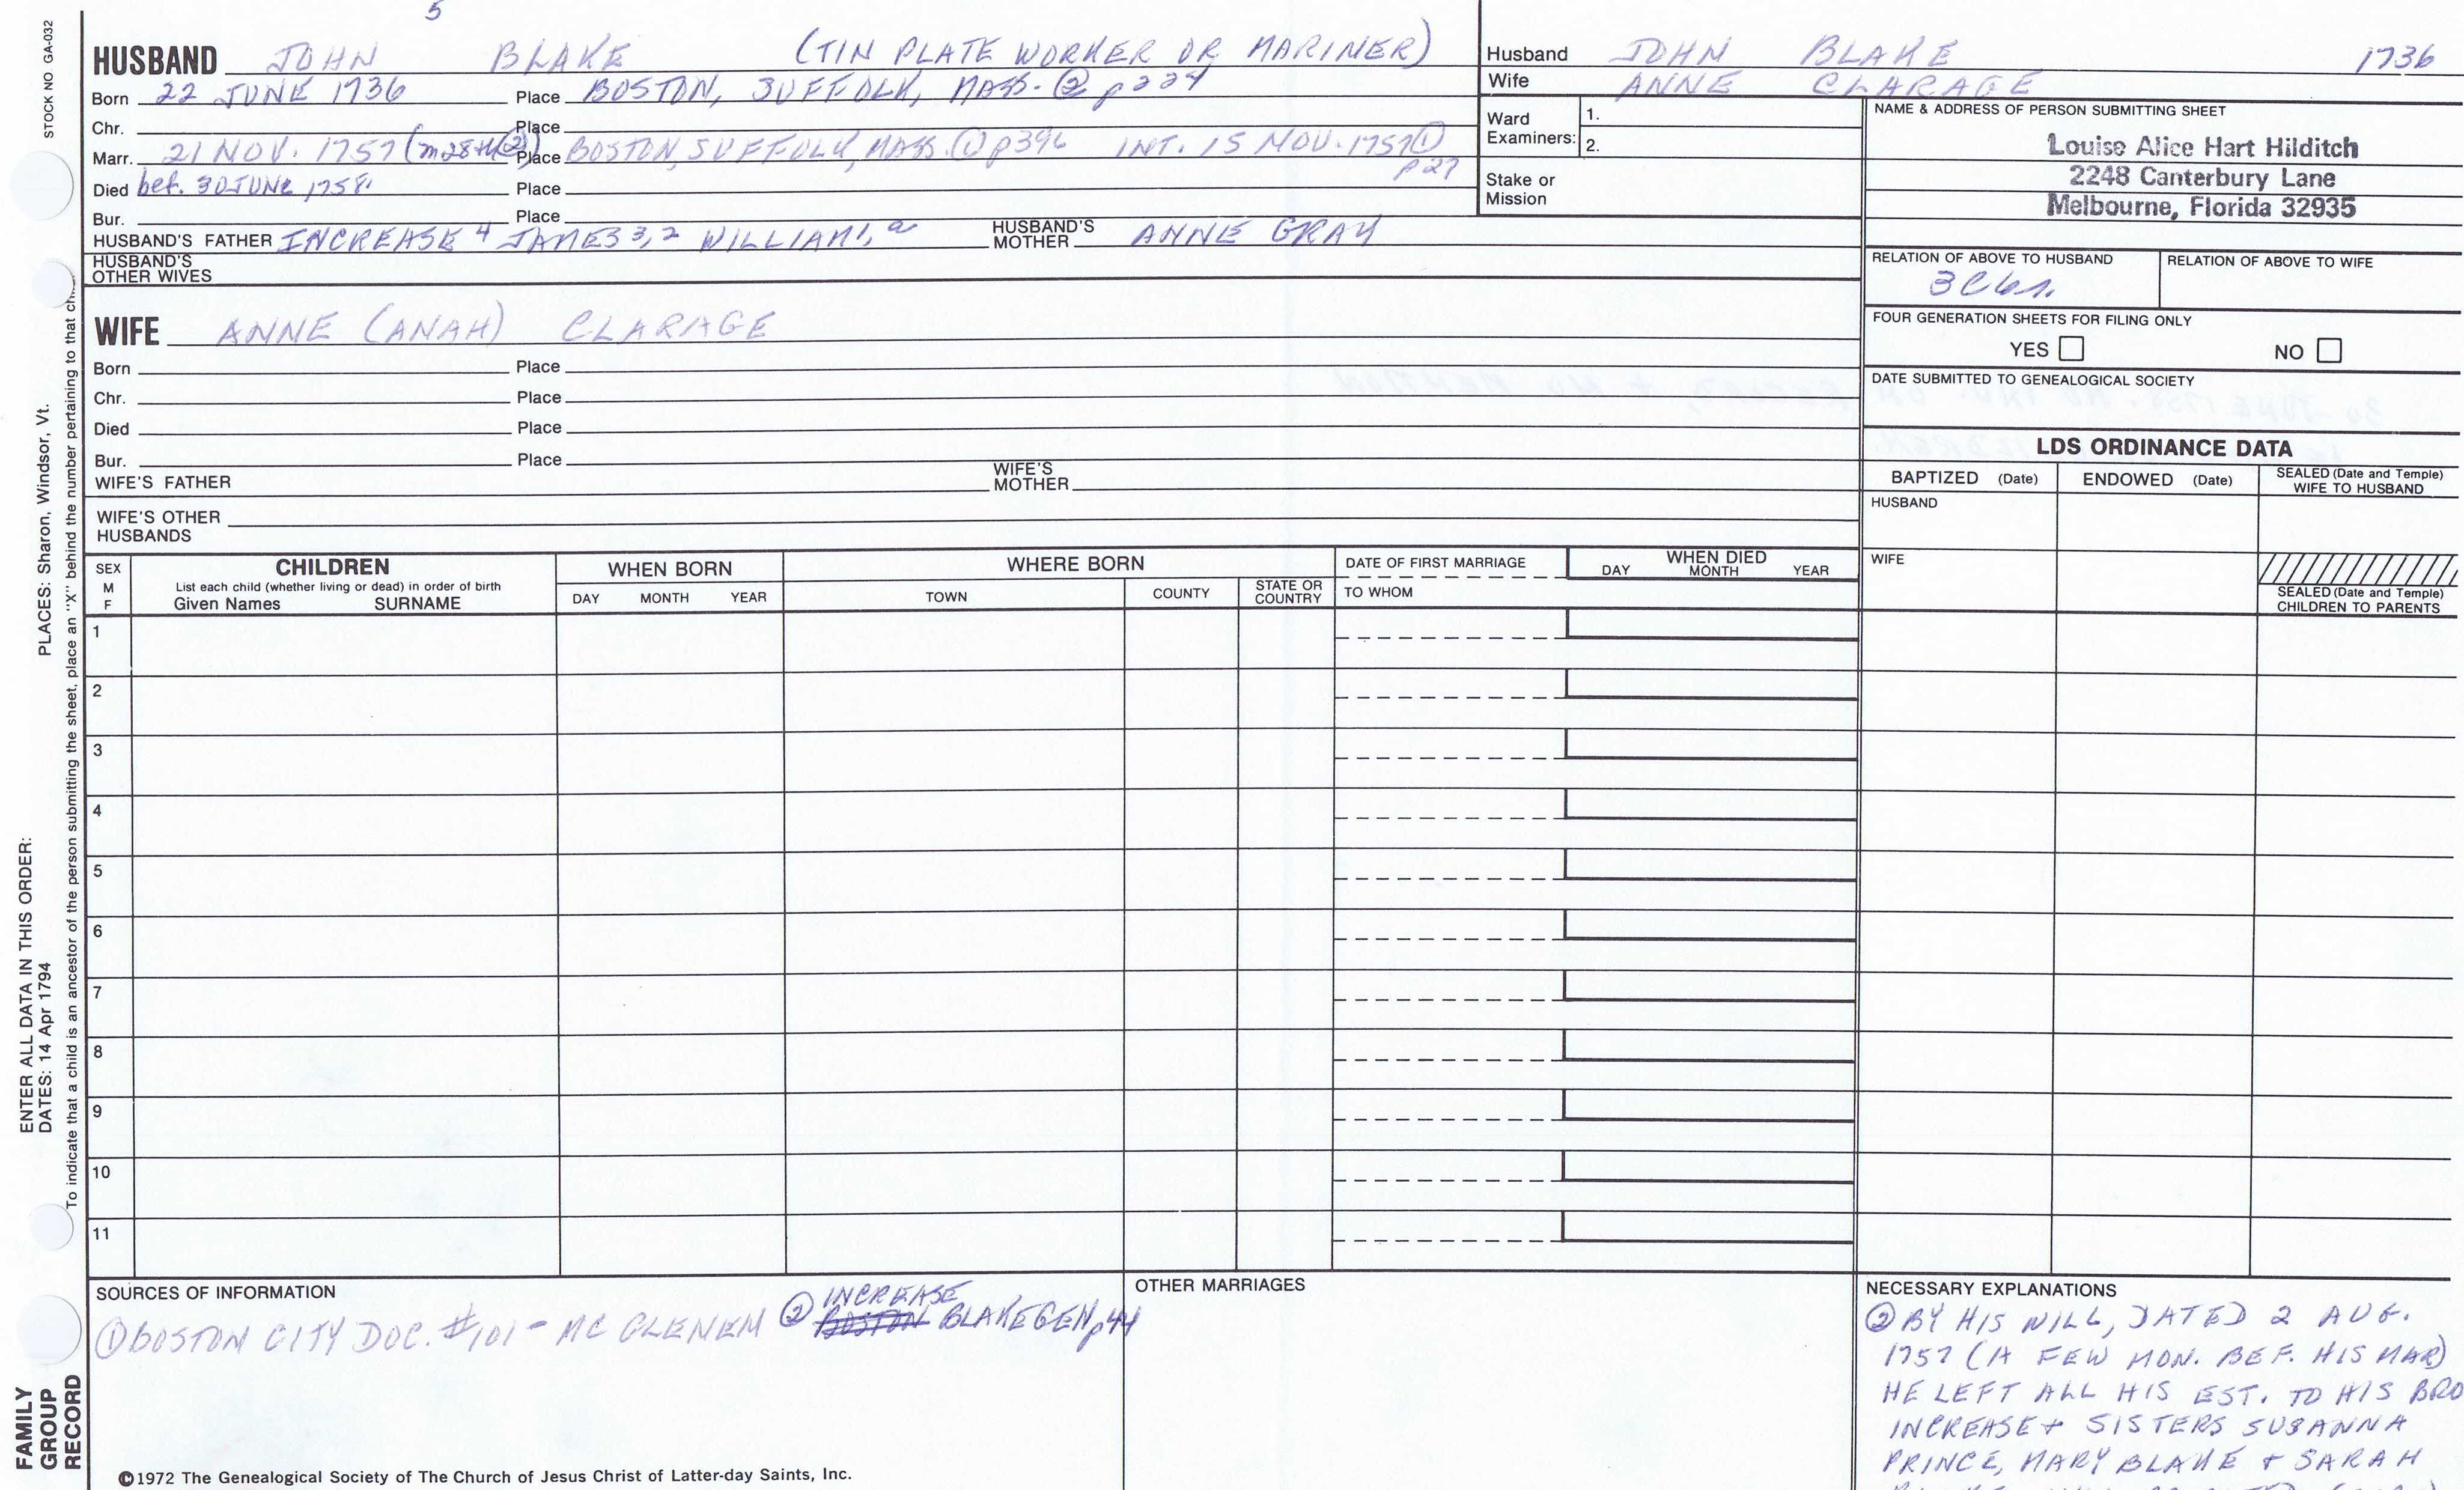 5
STOCK NO GA-032
HUSBAND JOHN BLAKE (TIN PLATE WORKER OR MARINER)
Born 22 JUNE 1736 Place BOSTON, SUFFOLK, MASS. ② p 224
Chr. Place
Marr. 21 NOV. 1757 (m 28th ②) Place BOSTON, SUFFOLK, MASS. ① p396 INT. 15 NOV. 1757 ①
p 27
Died bef. 30 JUNE 1758. Place
Bur. Place
HUSBAND'S FATHER INCREASE 4 JAMES 3, 2 WILLIAM 1, a HUSBAND'S MOTHER ANNE GRAY
HUSBAND'S
OTHER WIVES
WIFE ANNE (ANAH) CLARAGE
Born Place
Chr. Place
Died Place
Bur. Place
WIFE'S FATHER WIFE'S MOTHER
WIFE'S OTHER
HUSBANDS
Husband JOHN BLAKE 1736
Wife ANNE CLARAGE
Ward
Examiners: 1.
2.
Stake or
Mission
NAME & ADDRESS OF PERSON SUBMITTING SHEET
Louise Alice Hart Hilditch
2248 Canterbury Lane
Melbourne, Florida 32935
RELATION OF ABOVE TO HUSBAND RELATION OF ABOVE TO WIFE
FOUR GENERATION SHEETS FOR FILING ONLY
YES NO
DATE SUBMITTED TO GENEALOGICAL SOCIETY
LDS ORDINANCE DATA
BAPTIZED (Date) ENDOWED (Date) SEALED (Date and Temple)
WIFE TO HUSBAND
HUSBAND
WIFE
SEALED (Date and Temple)
CHILDREN TO PARENTS
SEX
M
F
CHILDREN
List each child (whether living or dead) in order of birth
Given Names SURNAME
WHEN BORN
DAY MONTH YEAR
WHERE BORN
TOWN COUNTY STATE OR
COUNTRY
DATE OF FIRST MARRIAGE
TO WHOM
WHEN DIED
DAY MONTH YEAR
1
2
3
4
5
6
7
8
9
10
11
SOURCES OF INFORMATION
① BOSTON CITY DOC. #101 - MC GLENEM ② INCREASE BOSTON BLAKE GEN p44
OTHER MARRIAGES
NECESSARY EXPLANATIONS
② BY HIS WILL, DATED 2 AUG.
1757 (A FEW MON. BEF. HIS MAR)
HE LEFT ALL HIS EST. TO HIS BRO
INCREASE + SISTERS SUSANNA
PRINCE, MARY BLAKE + SARAH
©1972 The Genealogical Society of The Church of Jesus Christ of Latter-day Saints, Inc.
FAMILY
GROUP
RECORD
ENTER ALL DATA IN THIS ORDER:
DATES: 14 Apr 1794 PLACES: Sharon, Windsor, Vt.
To indicate that a child is an ancestor of the person submitting the sheet, place an "X" behind the number pertaining to that